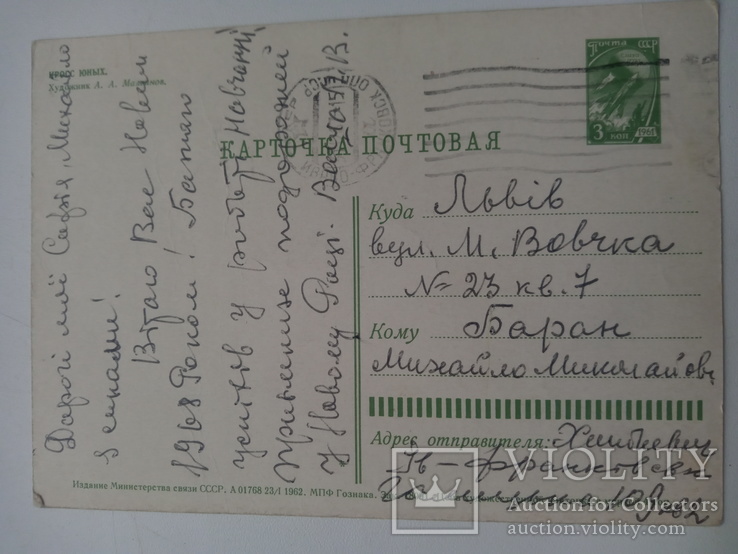 КРОСС ЮНЫХ.
Художник А. А. Мозлимов.
Дорогі мої Софія, Михайло
з синами!
Вітаю Вас Новим
1968 Роком! Багато
успіхів у роботі, навчанні,
приємних подорожей
у Новому Році.
ПОЧТА СССР
3 коп
1961
КАРТОЧКА ПОЧТОВАЯ
Куда Львів
вул. М. Вовчка
№ 23 кв. 7
Кому Баран
Михайло Миколайов.
Адрес отправителя:
Ів-Франковськ
Издание Министерства связи СССР. А 01768 23/I 1962. МПФ Гознака.
VIOLITY
Auction for Collectors
auction.violity.com